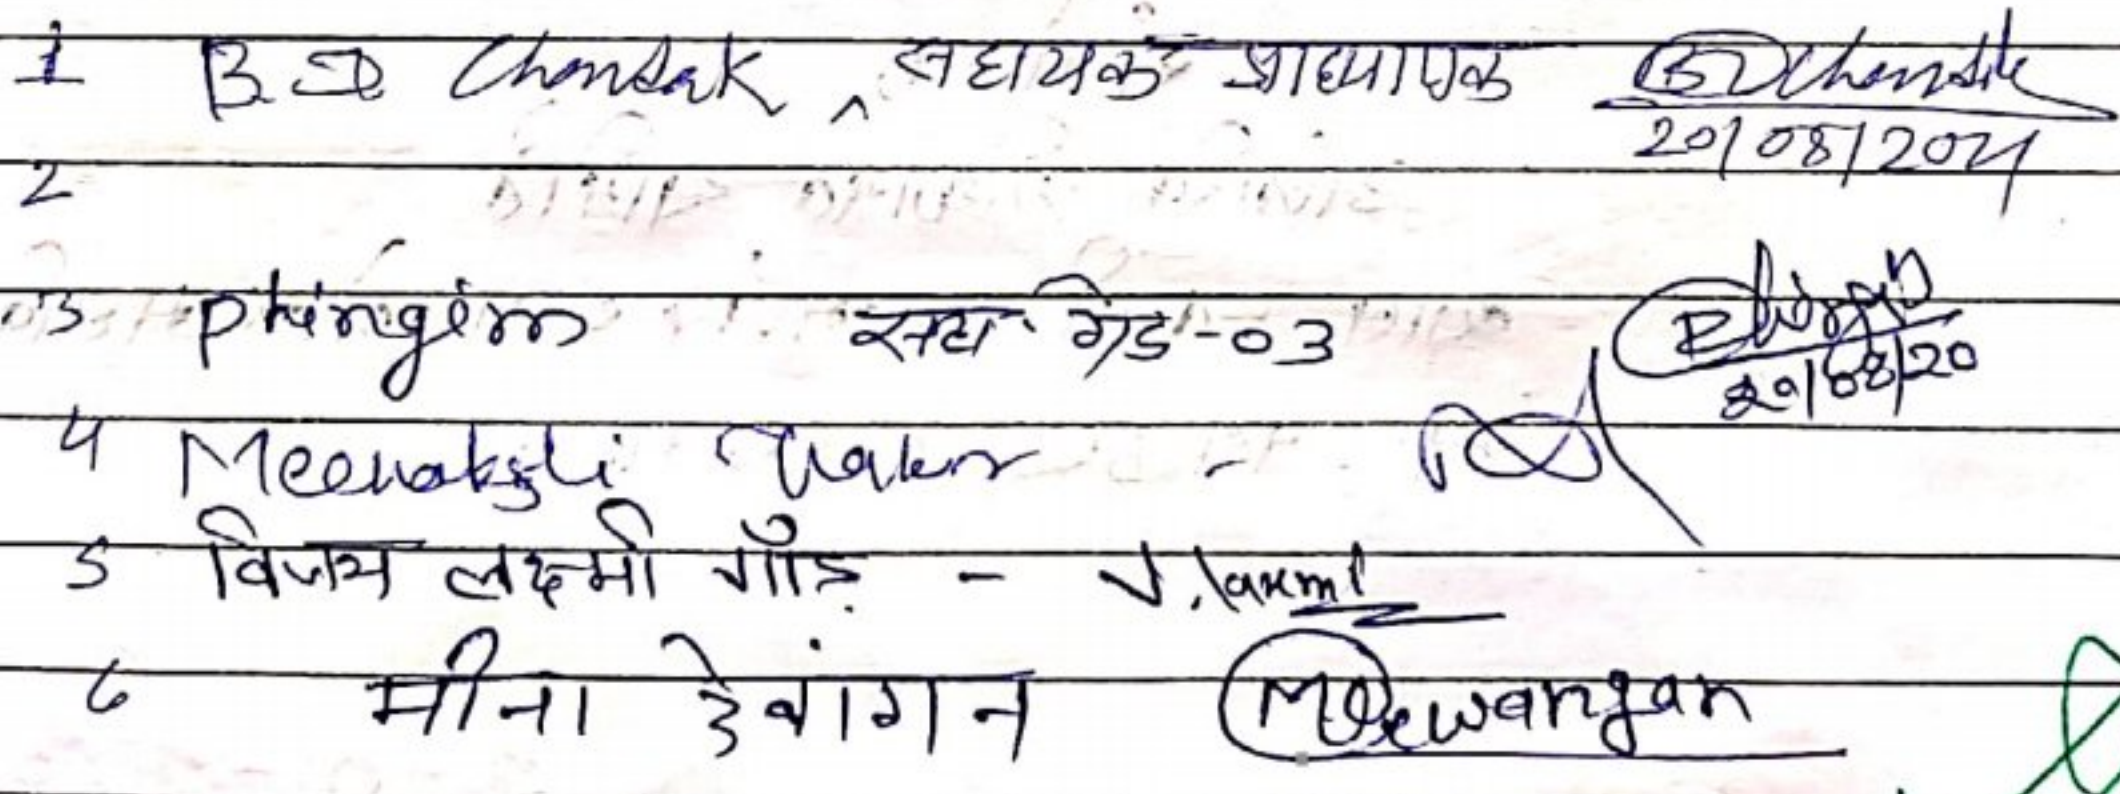 1 B. D Chandak, सहायक प्राध्यापक BDChandak
20/08/2021
2
3 Phingém सहा. ग्रेड-03
20/08/20
4 Meenakshi -
5 विजय लक्ष्मी गोंड़ - V. laxmi
6 मीना देवांगन MDewangan